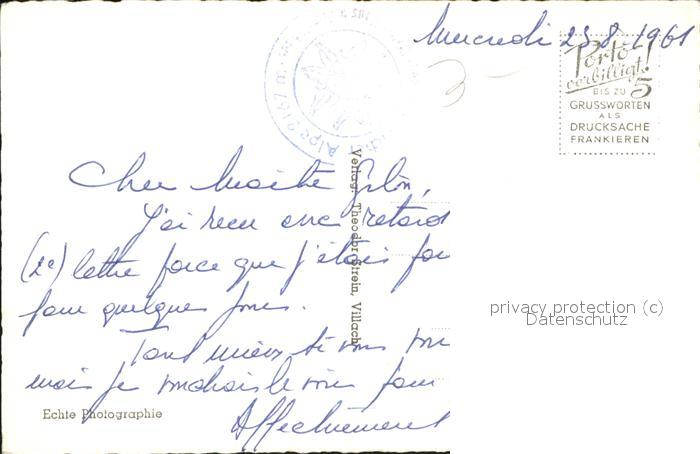 Mercredi 23.8.1961
Porto
verbilligt!
5
BIS ZU
GRUSSWORTEN
ALS
DRUCKSACHE
FRANKIEREN
Cher Maître
J'ai reçu avec retard
(2e) lettre parce que j'étais
pour quelques jours.
Tant mieux si vous
mais je voudrais le voir pour
Affectueusement
Verlag: Theodor Strein, Villach
Echte Photographie
privacy protection (c)
Datenschutz